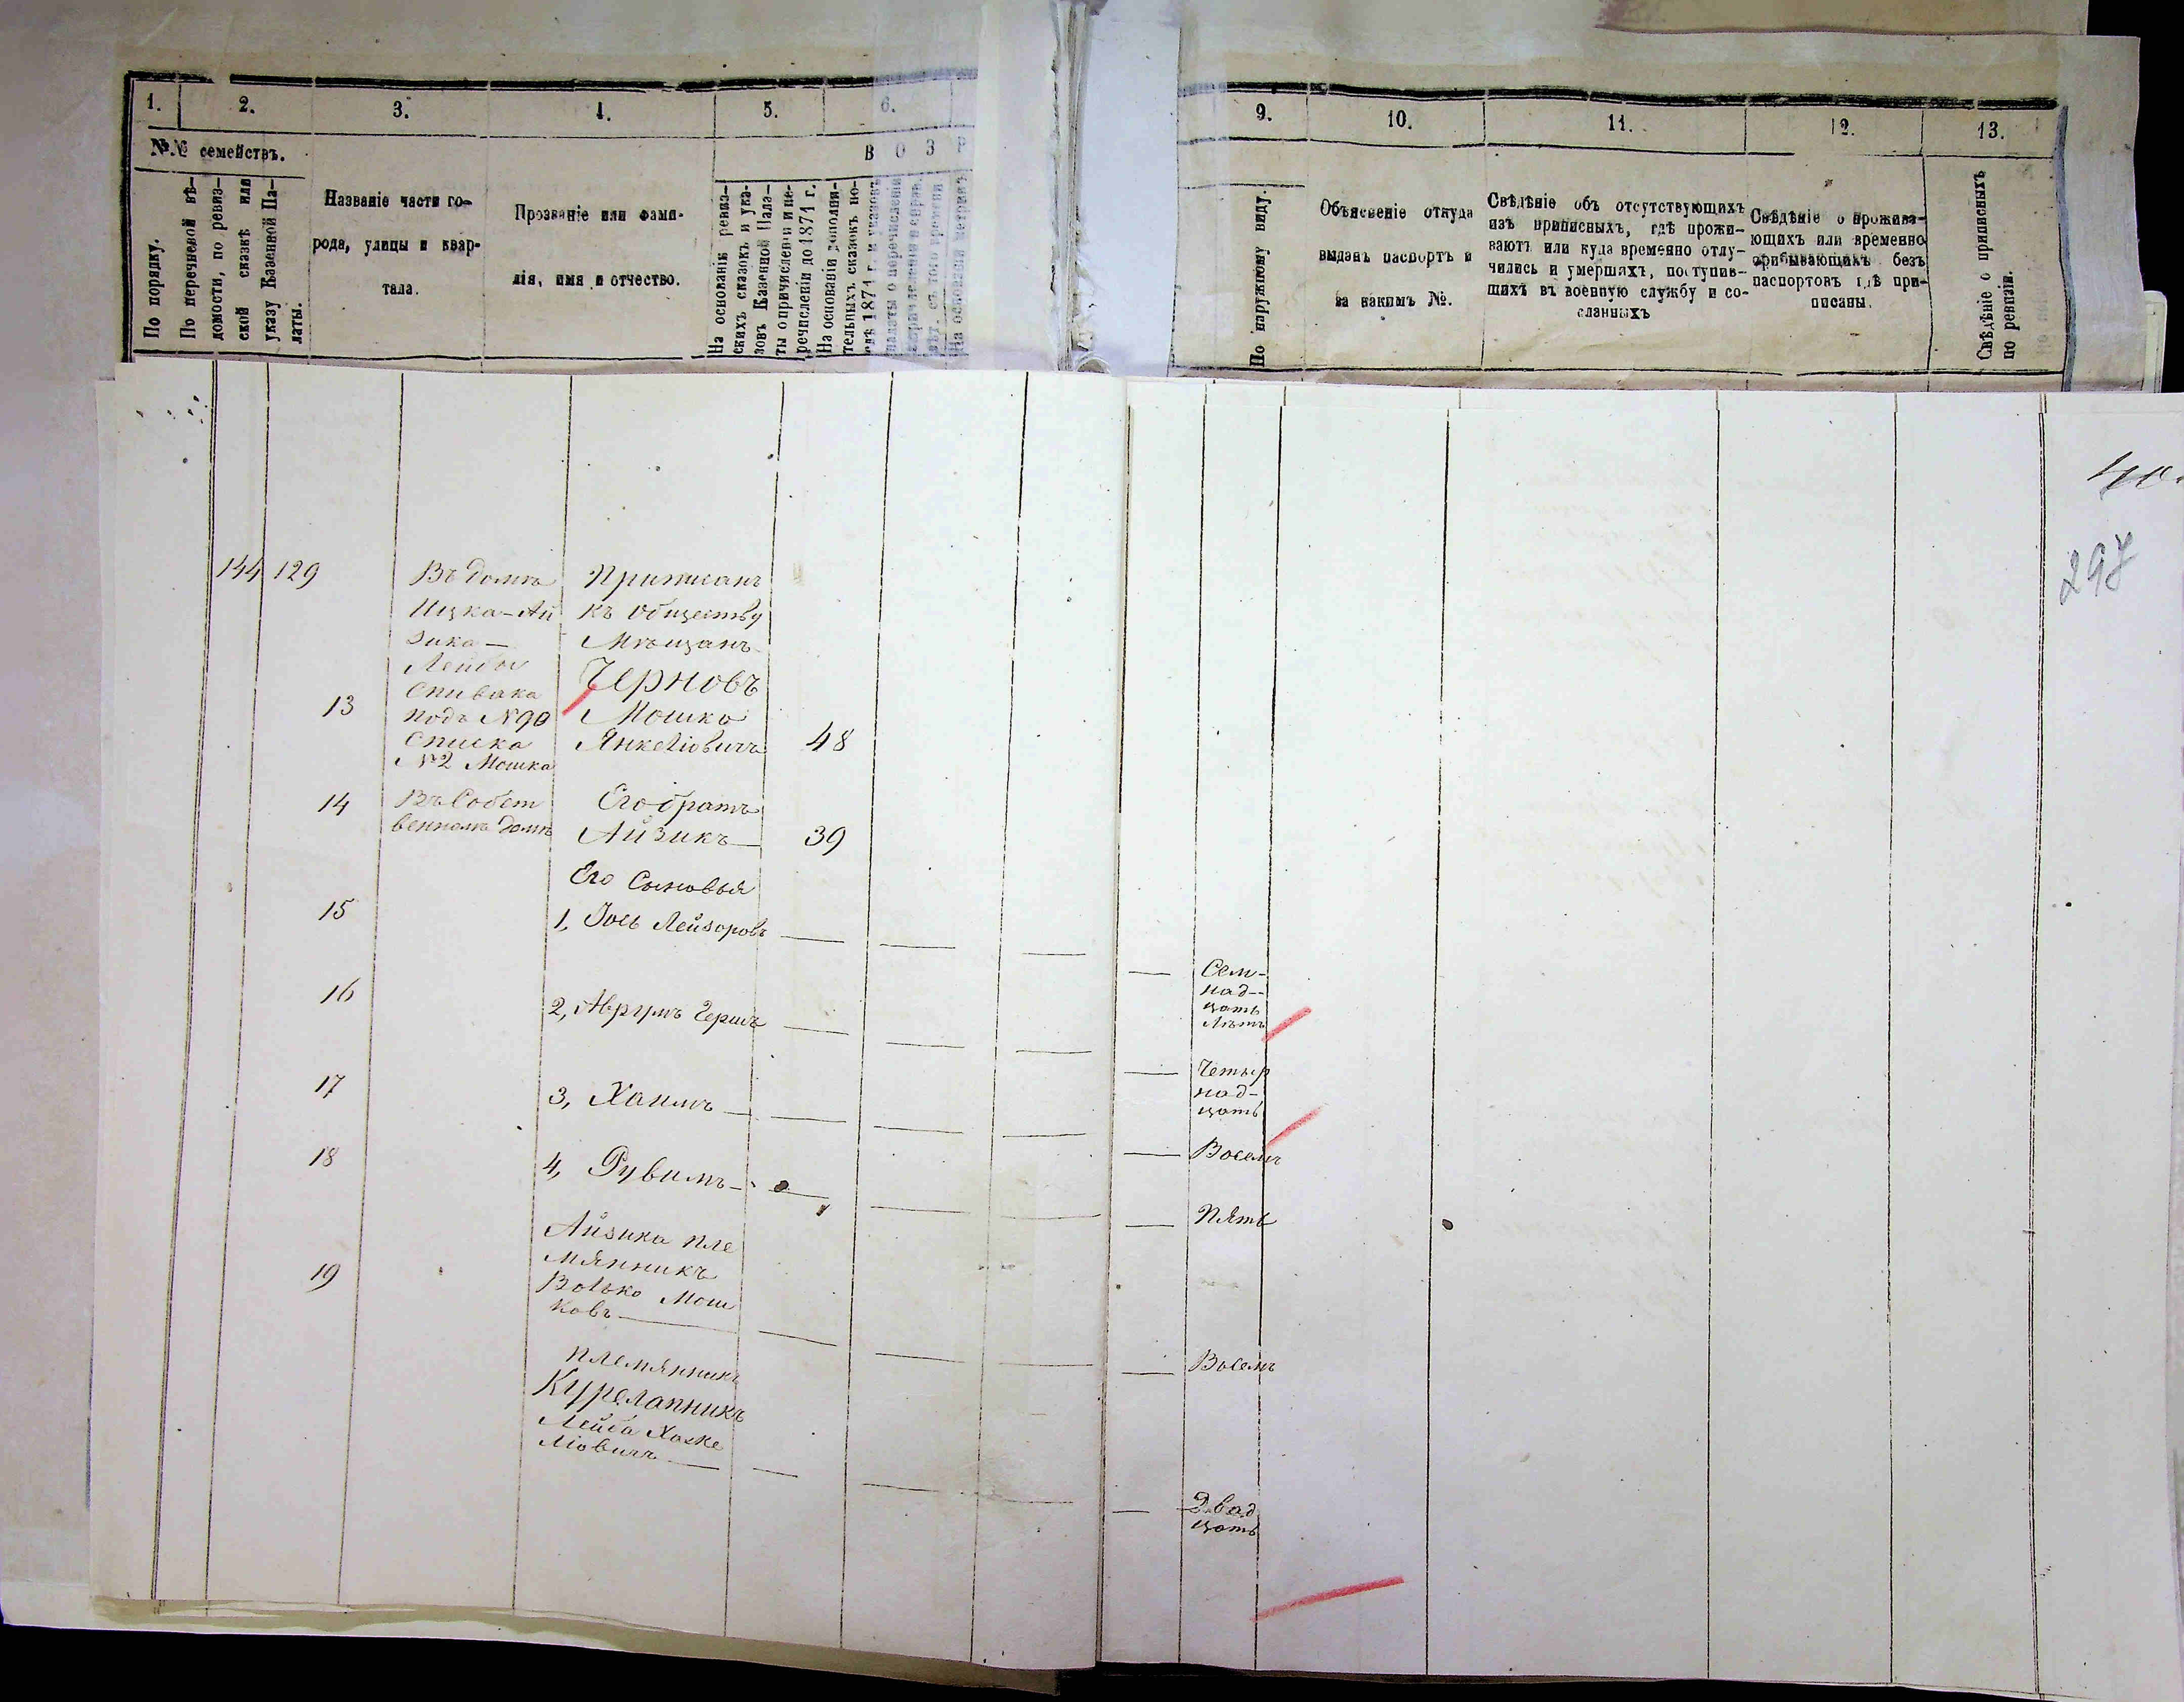 1.
2.
3.
4.
5.
6.
№№ семействъ.
В О З Р
По порядку.
По перечневой вѣ-
домости, по ревиз-
ской сказкѣ или
указу Казенной Па-
латы.
Названіе части го-
рода, улицы и квар-
тала.
Прозваніе или фами-
лія, имя и отчество.
На основаніи ревиз-
скихъ сказокъ и ука-
зовъ Казенной Пала-
ты о причисленіи и пе-
речисленіи до 1874 г.
На основаніи дополни-
тельныхъ сказокъ по-
слѣ 1874 г. и указовъ
палаты о перечисленіи
На основаніи метрикъ
9.
10.
11.
12.
13.
По наружному виду.
Объясненіе откуда
выданъ паспортъ и
за какимъ №.
Свѣдѣніе объ отсутствующихъ
изъ приписныхъ, гдѣ прожи-
ваютъ или куда временно отлу-
чились и умершихъ, поступив-
шихъ въ военную службу и со-
сланныхъ
Свѣдѣніе о прожива-
ющихъ или временно
прибывающихъ безъ
паспортовъ гдѣ при-
писаны.
Свѣдѣніе о приписныхъ
по ревизіи.
297
144 129
Въ домѣ
Ицка-Ай
зика-
Лейбы
Спивака
подъ №90
списка
№2 Мошка
Приписанъ
къ обществу
Мѣщанъ
Черновъ
13
Мошко
Янкеліовичъ 48
14
Въ Собст
венномъ домѣ
Его братъ
Айзикъ 39
Его Сыновья
15
1, Іось Лейзоровъ
Сем-
над-
цать
лѣтъ
16
2, Аврумъ Гершъ
Четыр
над-
цать
17
3, Хаимъ
Восемъ
18
4, Рувимъ
Пять
19
Айзика пле
мянникъ
Волько Мош
ковъ
Восемъ
племянникъ
Курелапникъ
Лейба Хаске
ліовичъ
Двад
цать